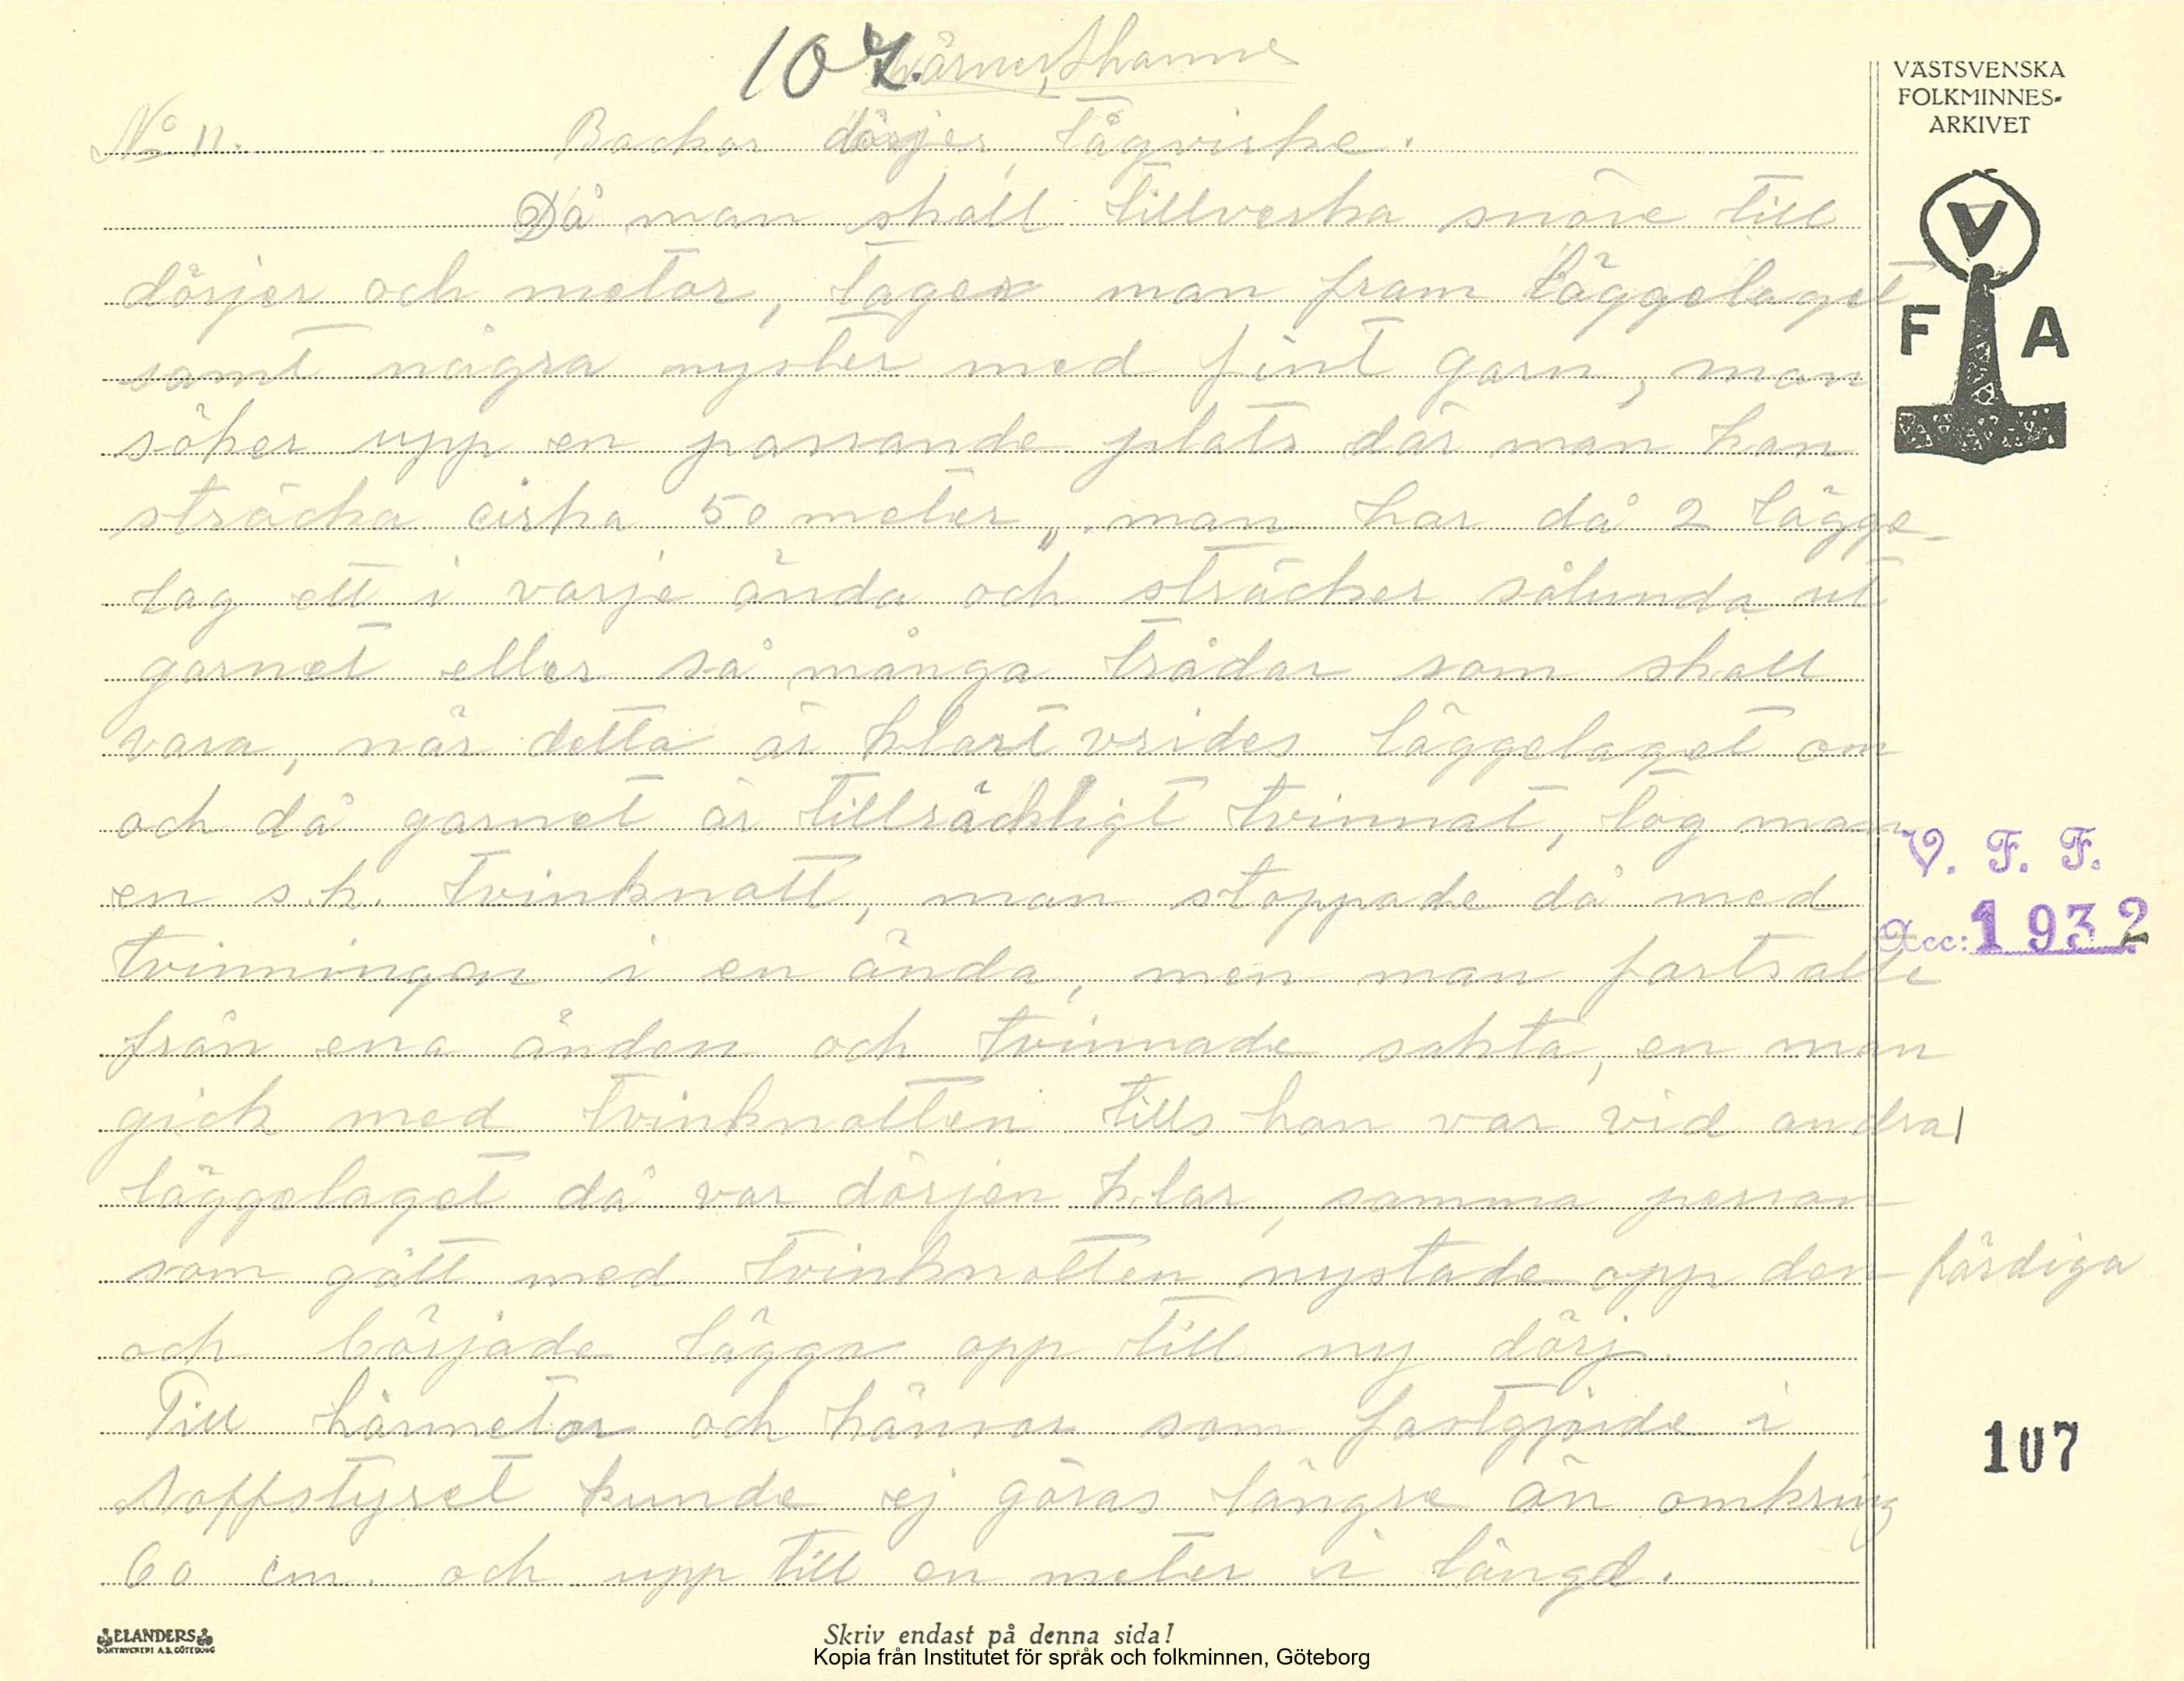 107.
VÄSTSVENSKA
FOLKMINNES-
ARKIVET
No 11. Backor dörjer, tågvirke.
Då man skall tillverka snöre till
dörjer och metor, tager man fram läggelaget
samt några nyster med fint garn, man
söker upp en passande plats där man kan
sträcka cirka 50 meter, man har då 2 lägge-
lag ett i varje ända och sträcker sålunda ut
garnet eller så många trådar som skall
vara, när detta är klart vrides läggelaget om
och då garnet är tillräckligt tvinnat, tog man
en s.k. tvinknatt, man stoppade då med
tvinningen i en ända, men man fortsatte
från ena änden och tvinnade sakta, en man
gick med tvinknatten tills han var vid andra
läggelaget då var dörjen klar, samma person
som gått med tvinknatten nystade opp den färdiga
och började lägga opp till ny dörj.
Till hårmetor och hänsor som fastgjorde i
Noffstyret kunde ej göras längre än omkring
60 cm. och upp till en meter i längd.
V
F A
V. F. F.
Acc: 1932
107
ELANDERS
BOKTRYCKERI A.B. GÖTEBORG
Skriv endast på denna sida!
Kopia från Institutet för språk och folkminnen, Göteborg